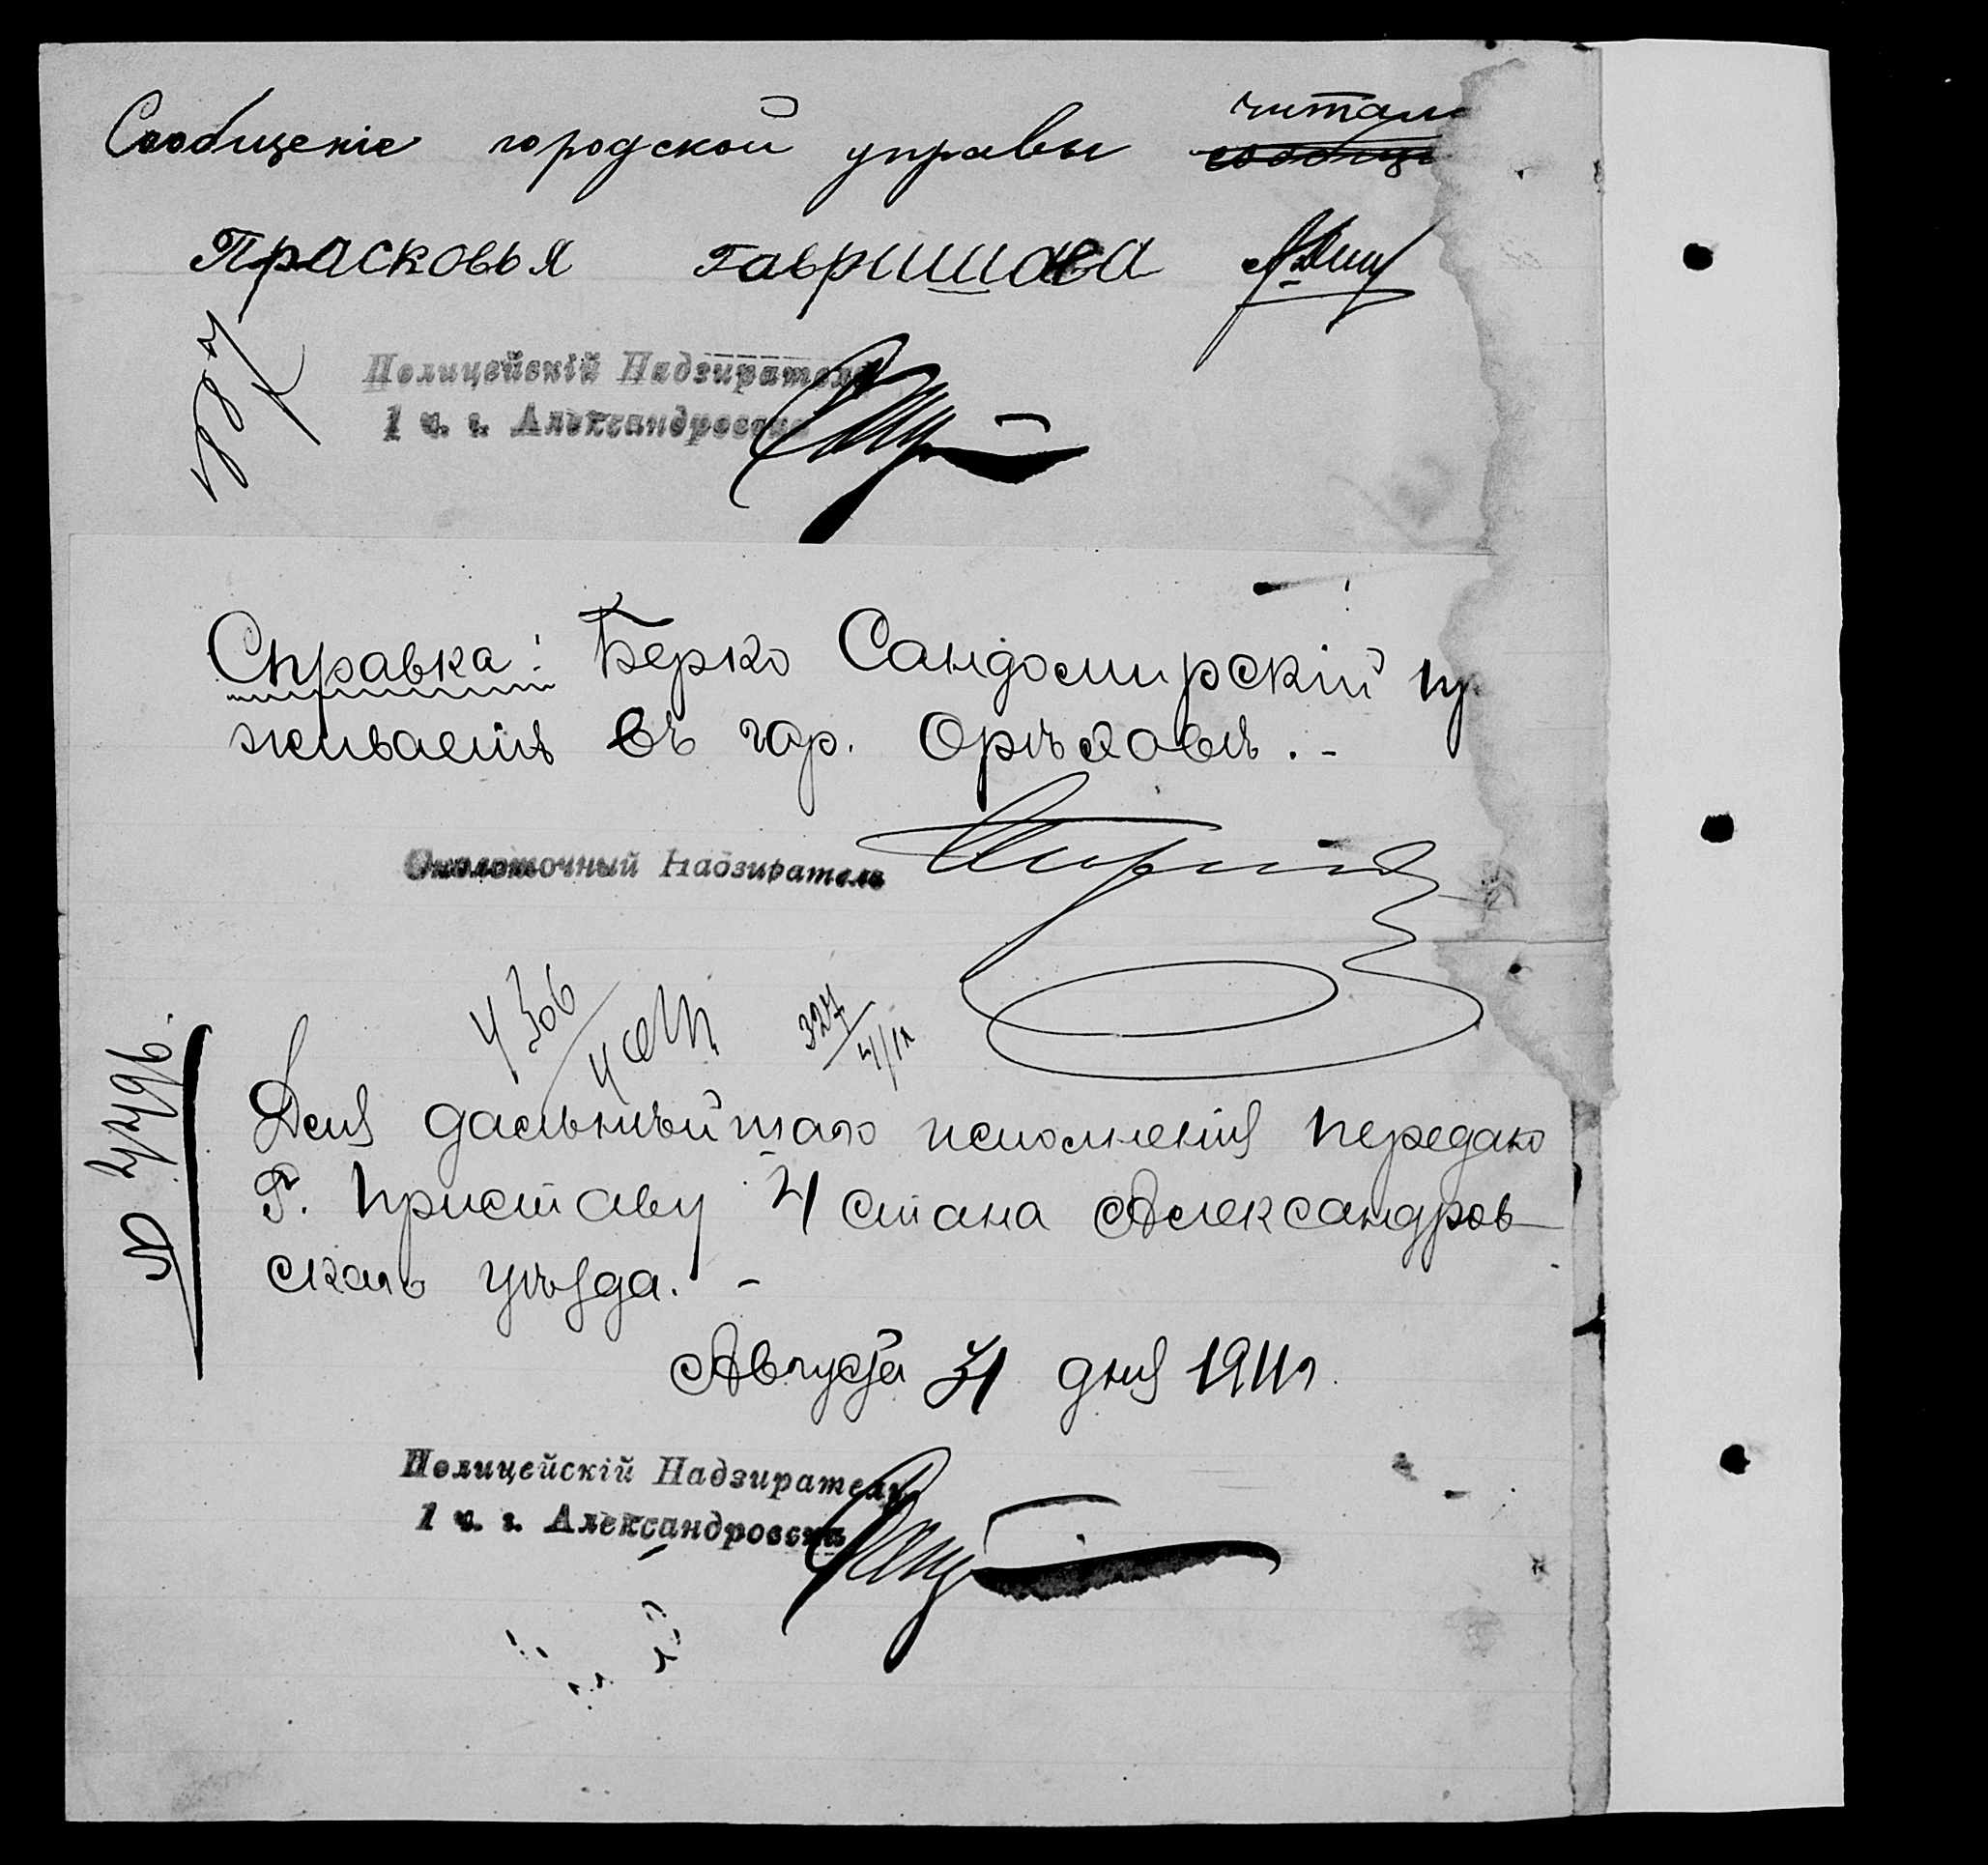 читали
Сообщеніе городской управы
Прасковья Гавришова
Полицейскій Надзиратель
1 ч. г. Александровска
Справка: Берко Сандомирскій пр
живаетъ въ гор. Орѣховѣ. -
Околоточный Надзиратель
327
4/IX
Для дальнѣйшаго исполненія передаю
Г. Приставу 4 стана Александров
скаго уѣзда. -
Августа 31 дня 1911 г.
Полицейскій Надзиратель
1 ч. г. Александровска